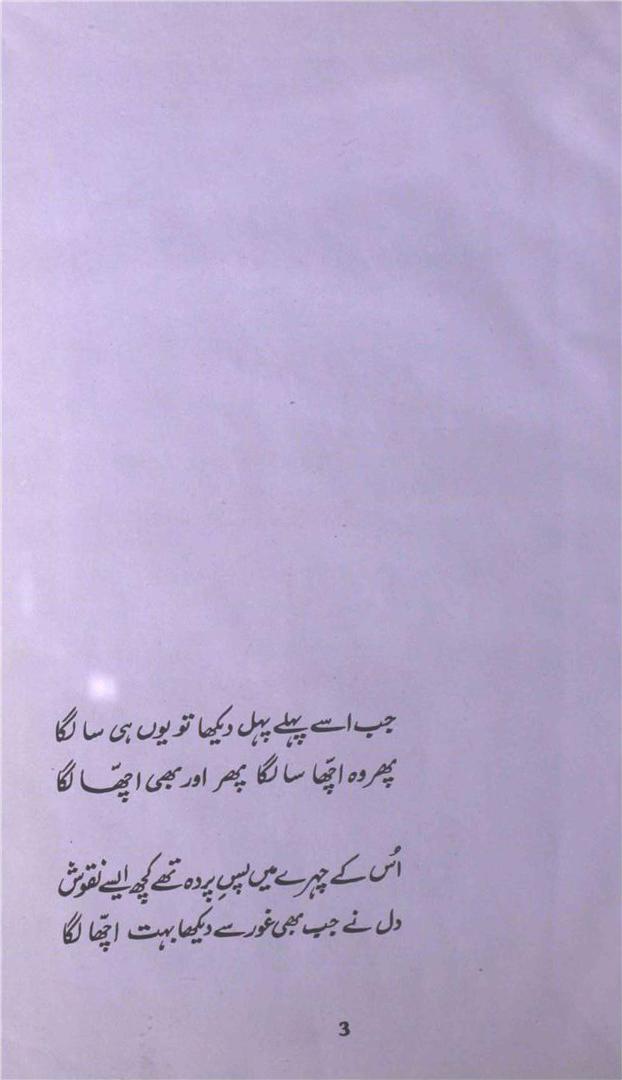 جب اسے پہلے پہل دیکھا تو یوں ہی سا لگا
پھر وہ اچّھا سا لگا پھر اور بھی اچّھا لگا
اُس کے چہرے میں پسِ پردہ تھے کچھ ایسے نقوش
دل نے جب بھی غور سے دیکھا بہت اچّھا لگا
3